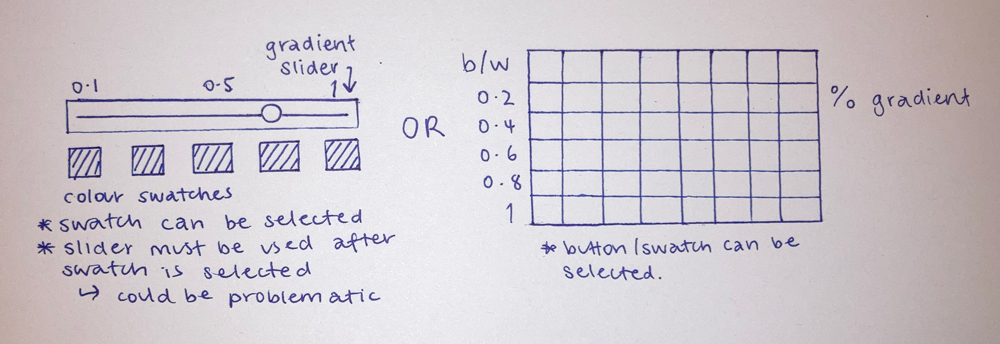 gradient
slider
0.1
0.5
1
colour swatches
* swatch can be selected
* slider must be used after
swatch is selected
↳ could be problematic
OR
b/w
0.2
0.4
0.6
0.8
1
% gradient
* button/swatch can be
selected.